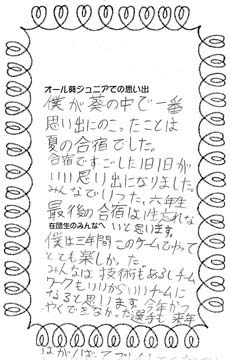 オール葵ジュニアでの思い出
僕が葵の中で一番
思い出にのこったことは
夏の合宿でした。
合宿ですごした1日1日が
いい思い出になりました。
みんなでいった、六年生
最後の合宿は一生忘れな
在団生のみんなへ いと思います。
僕は三年間このチームでやって
とても楽しかった
みんなは技術もあるしチーム
ワークもいいからいいチームに
なると思います。今年かつ
やくできなかった選手も来年
はがんばって